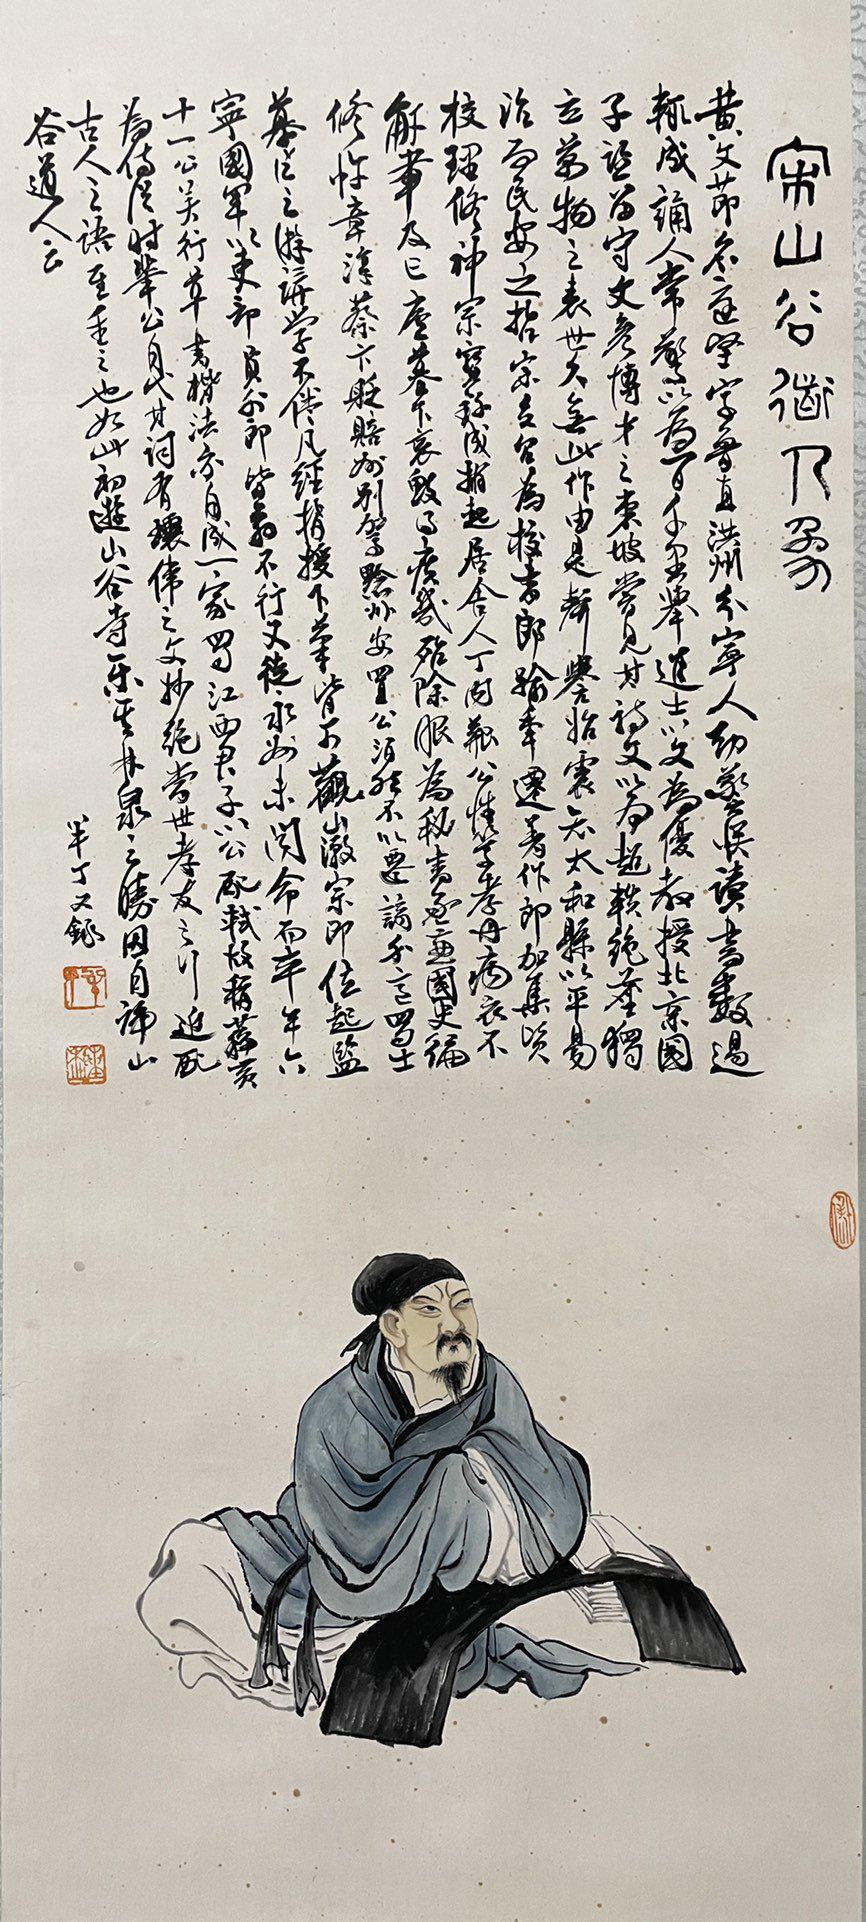 宋山谷道人象
黄文節名庭堅字魯直洪州分寧人幼警悟讀書數過
輒成誦人常驚以為一日千里舉進士以文為優教授北京國
子監留守文彦博才之東坡嘗見其詩文以為超軼絶塵獨
立萬物之表世久無此作由是聲譽始震知太和縣以平易
治而民安之哲宗立召為校書郎踰年遷著作郎加集賢
校理修神宗實録成擢起居舍人丁内艱公性篤孝母病衣不
解帶及亡廬墓下哀毁得疾幾殆除服為秘書丞兼國史編
修 章淳蔡卞貶 州别駕黔州安置公泊然不以遷謫介意蜀士
慕從之游講學不倦凡經指授下筆皆可觀山徽宗即位起監
寧國軍以吏部員外郎皆辭不行又徙永州未聞命而卒年六
十一公善行草書楷法亦自成一家蜀江西君子以公配軾故稱蘇黄
為侍從時舉公自代其詞有瓌偉之文妙絶當世孝友之行追配
古人之語其重之也如此初遊山谷寺樂其林泉之勝因自號山
谷道人云
半丁又録